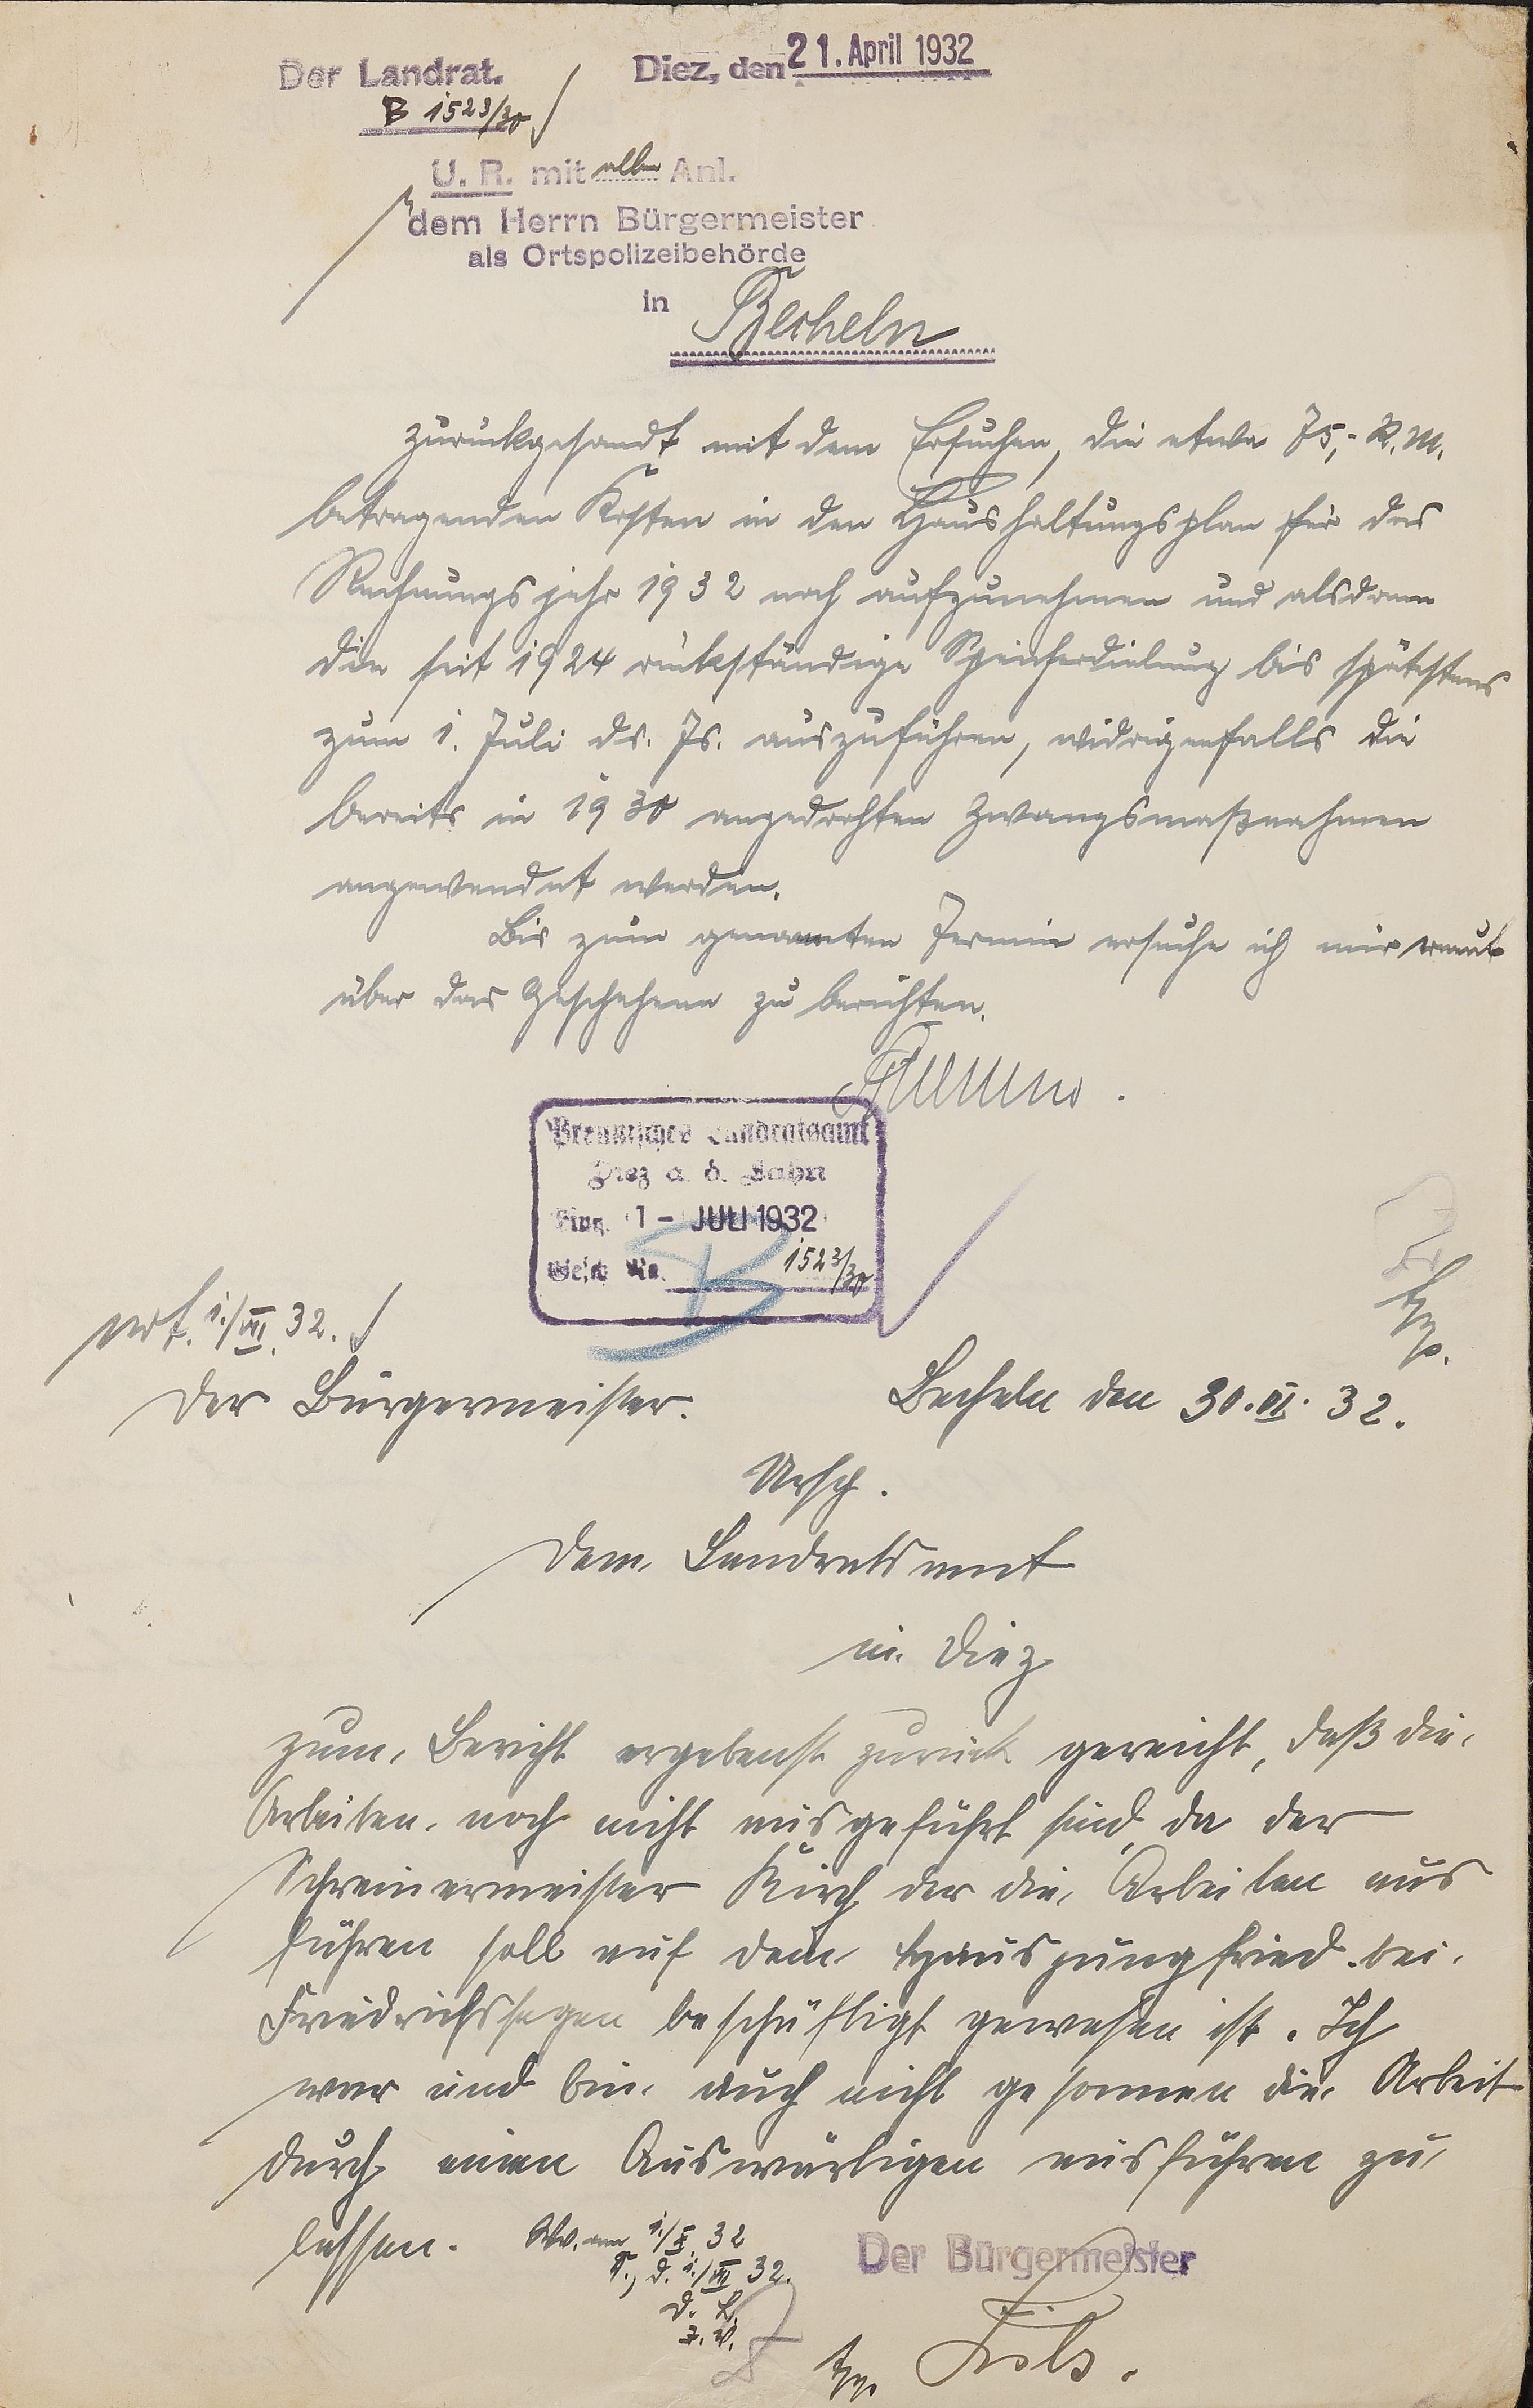 Der Landrat.
Diez, den 21. April 1932
B 1523/30
U. R. mit allen Anl.
dem Herrn Bürgermeister
als Ortspolizeibehörde
in Becheln
zurückgesandt mit dem Ersuchen, die etwa 75,- R.M.
betragenden Kosten in den Haushaltungsplan für das
Rechnungsjahr 1932 noch aufzunehmen und alsdann
die seit 1924 rückständige Speicherdielung bis spätestens
zum 1. Juli ds. Js. auszuführen, widrigenfalls die
bereits in 1930 angedrohten Zwangsmaßnahmen
angewendet werden.
Bis zum genannten Termin ersuche ich mir erneut
über das Geschehene zu berichten.
Preussisches Landratsamt
Diez a. d. Lahn
Eing. 1 - JULI 1932
Gesch. No. 1523/30
B
1./VII. 32.
Der Bürgermeister.
Becheln den 30. VI. 32.
Ursch.
Dem Landratsamt
in Diez
zum Bericht ergebenst zurück gereicht, daß die
Arbeiten noch nicht ausgeführt sind, da der
Schreinermeister Kirch der die Arbeiten aus
führen soll auf dem bei
Friedrichssegen beschäftigt gewesen ist. Ich
war und bin auch nicht gesonnen die Arbeit
durch einen Auswärtigen ausführen zu
lassen.
Wv. am 1./X. 32
D., d. 1./VII 32.
d. L.
Der Bürgermeister